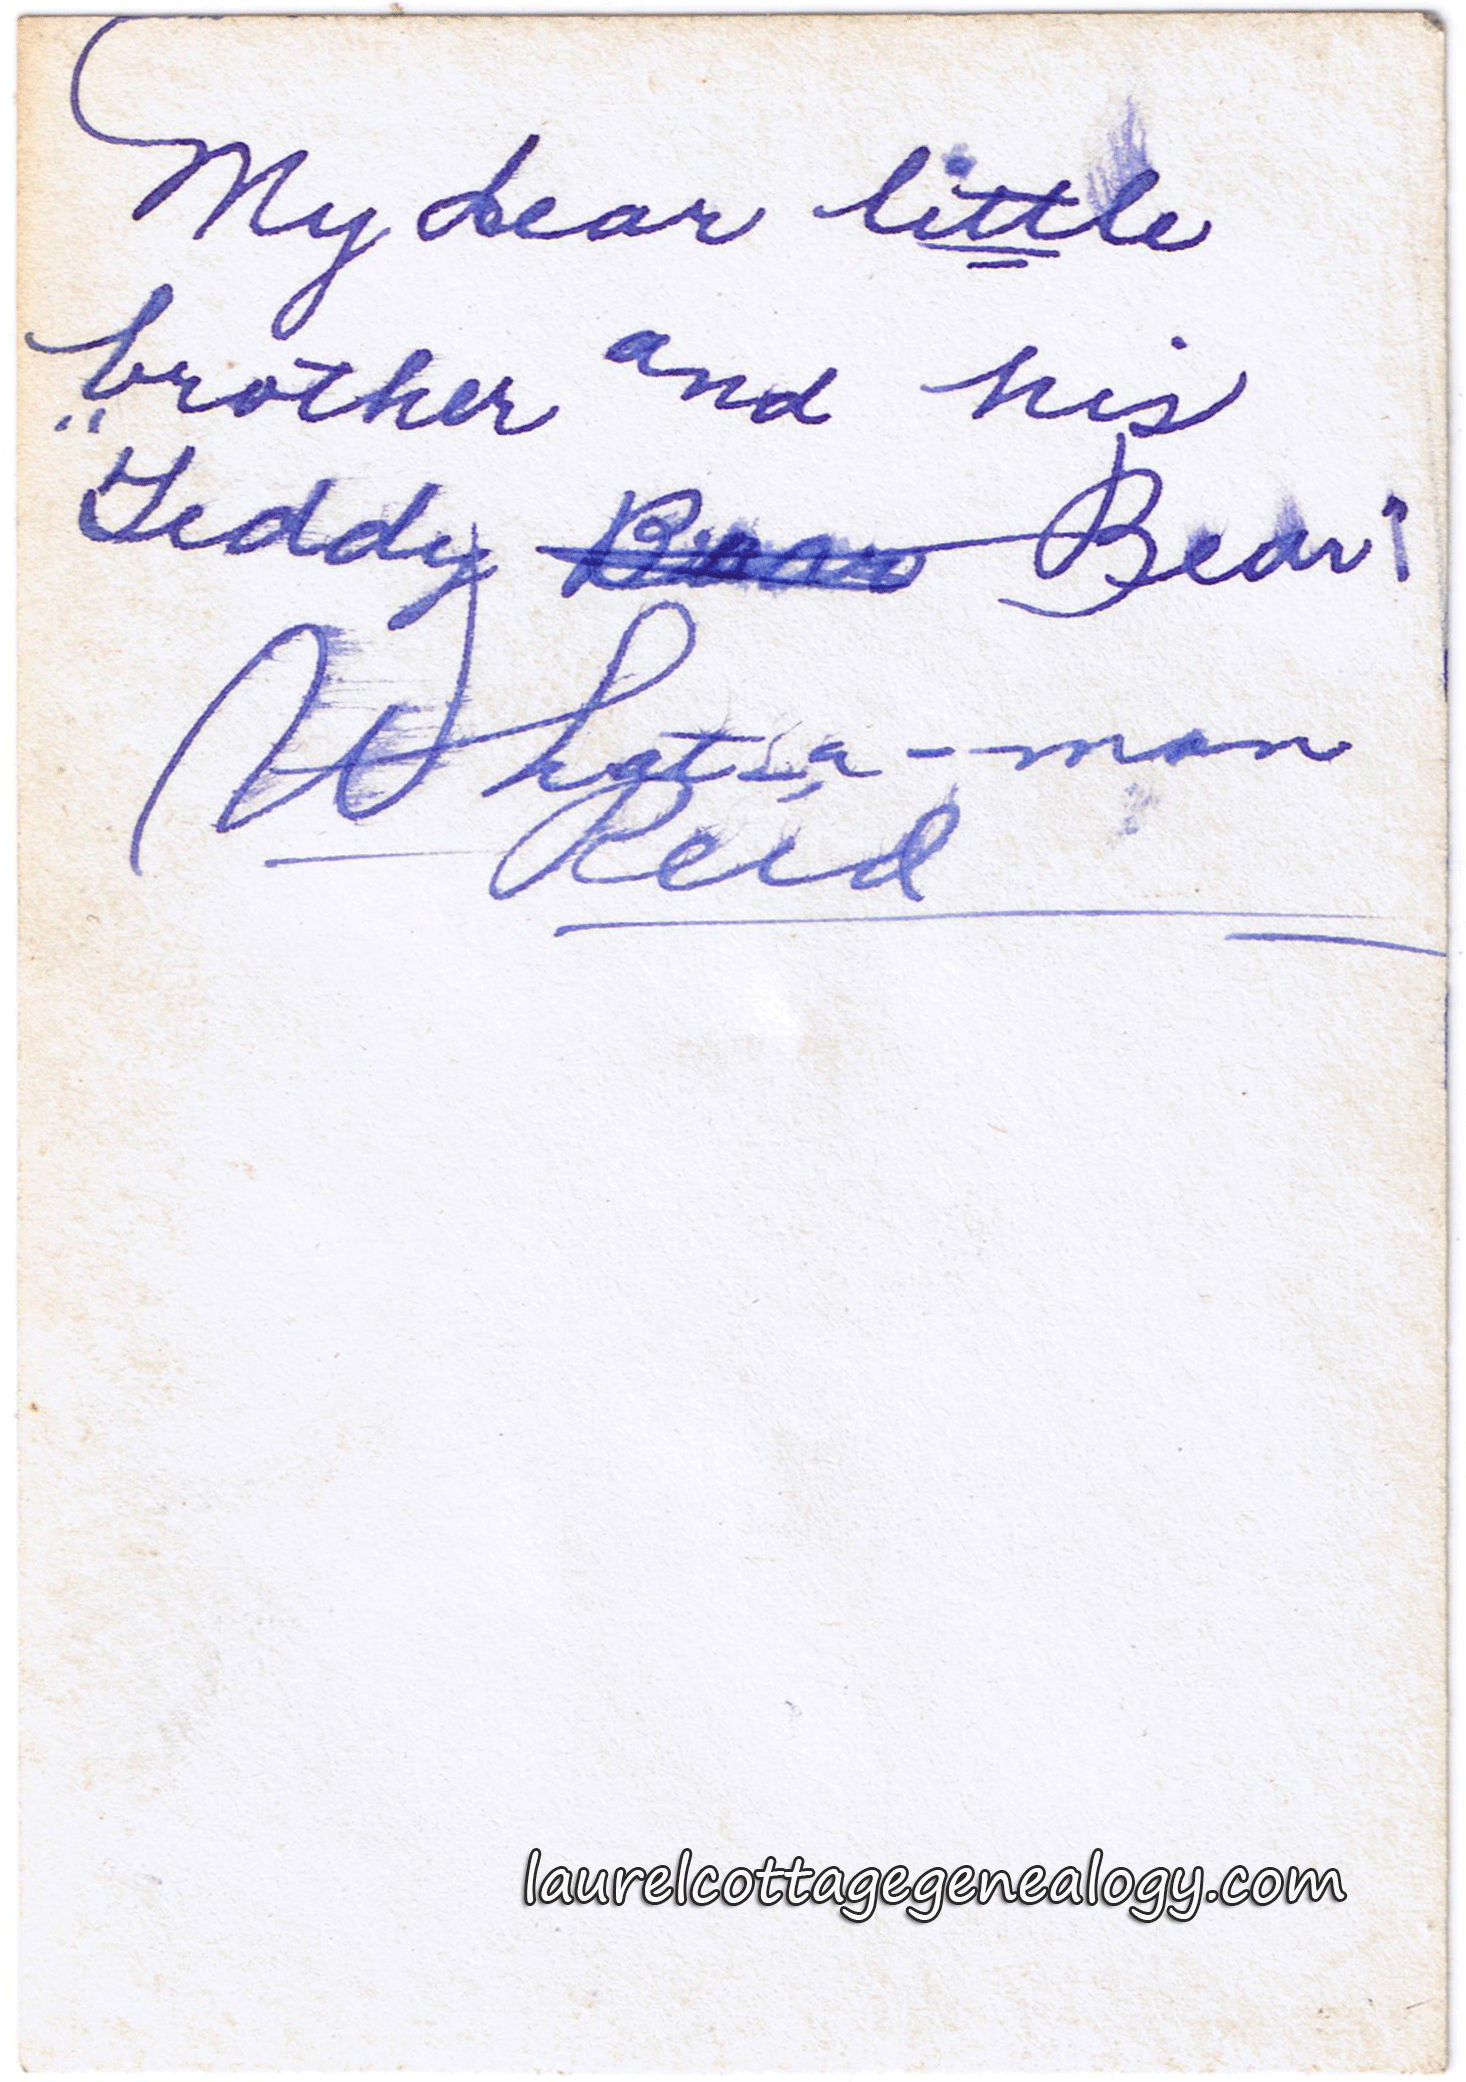 My dear little
brother and his
"Teddy Bear"
Whatsa-man
Reid
laurelcottagegenealogy.com